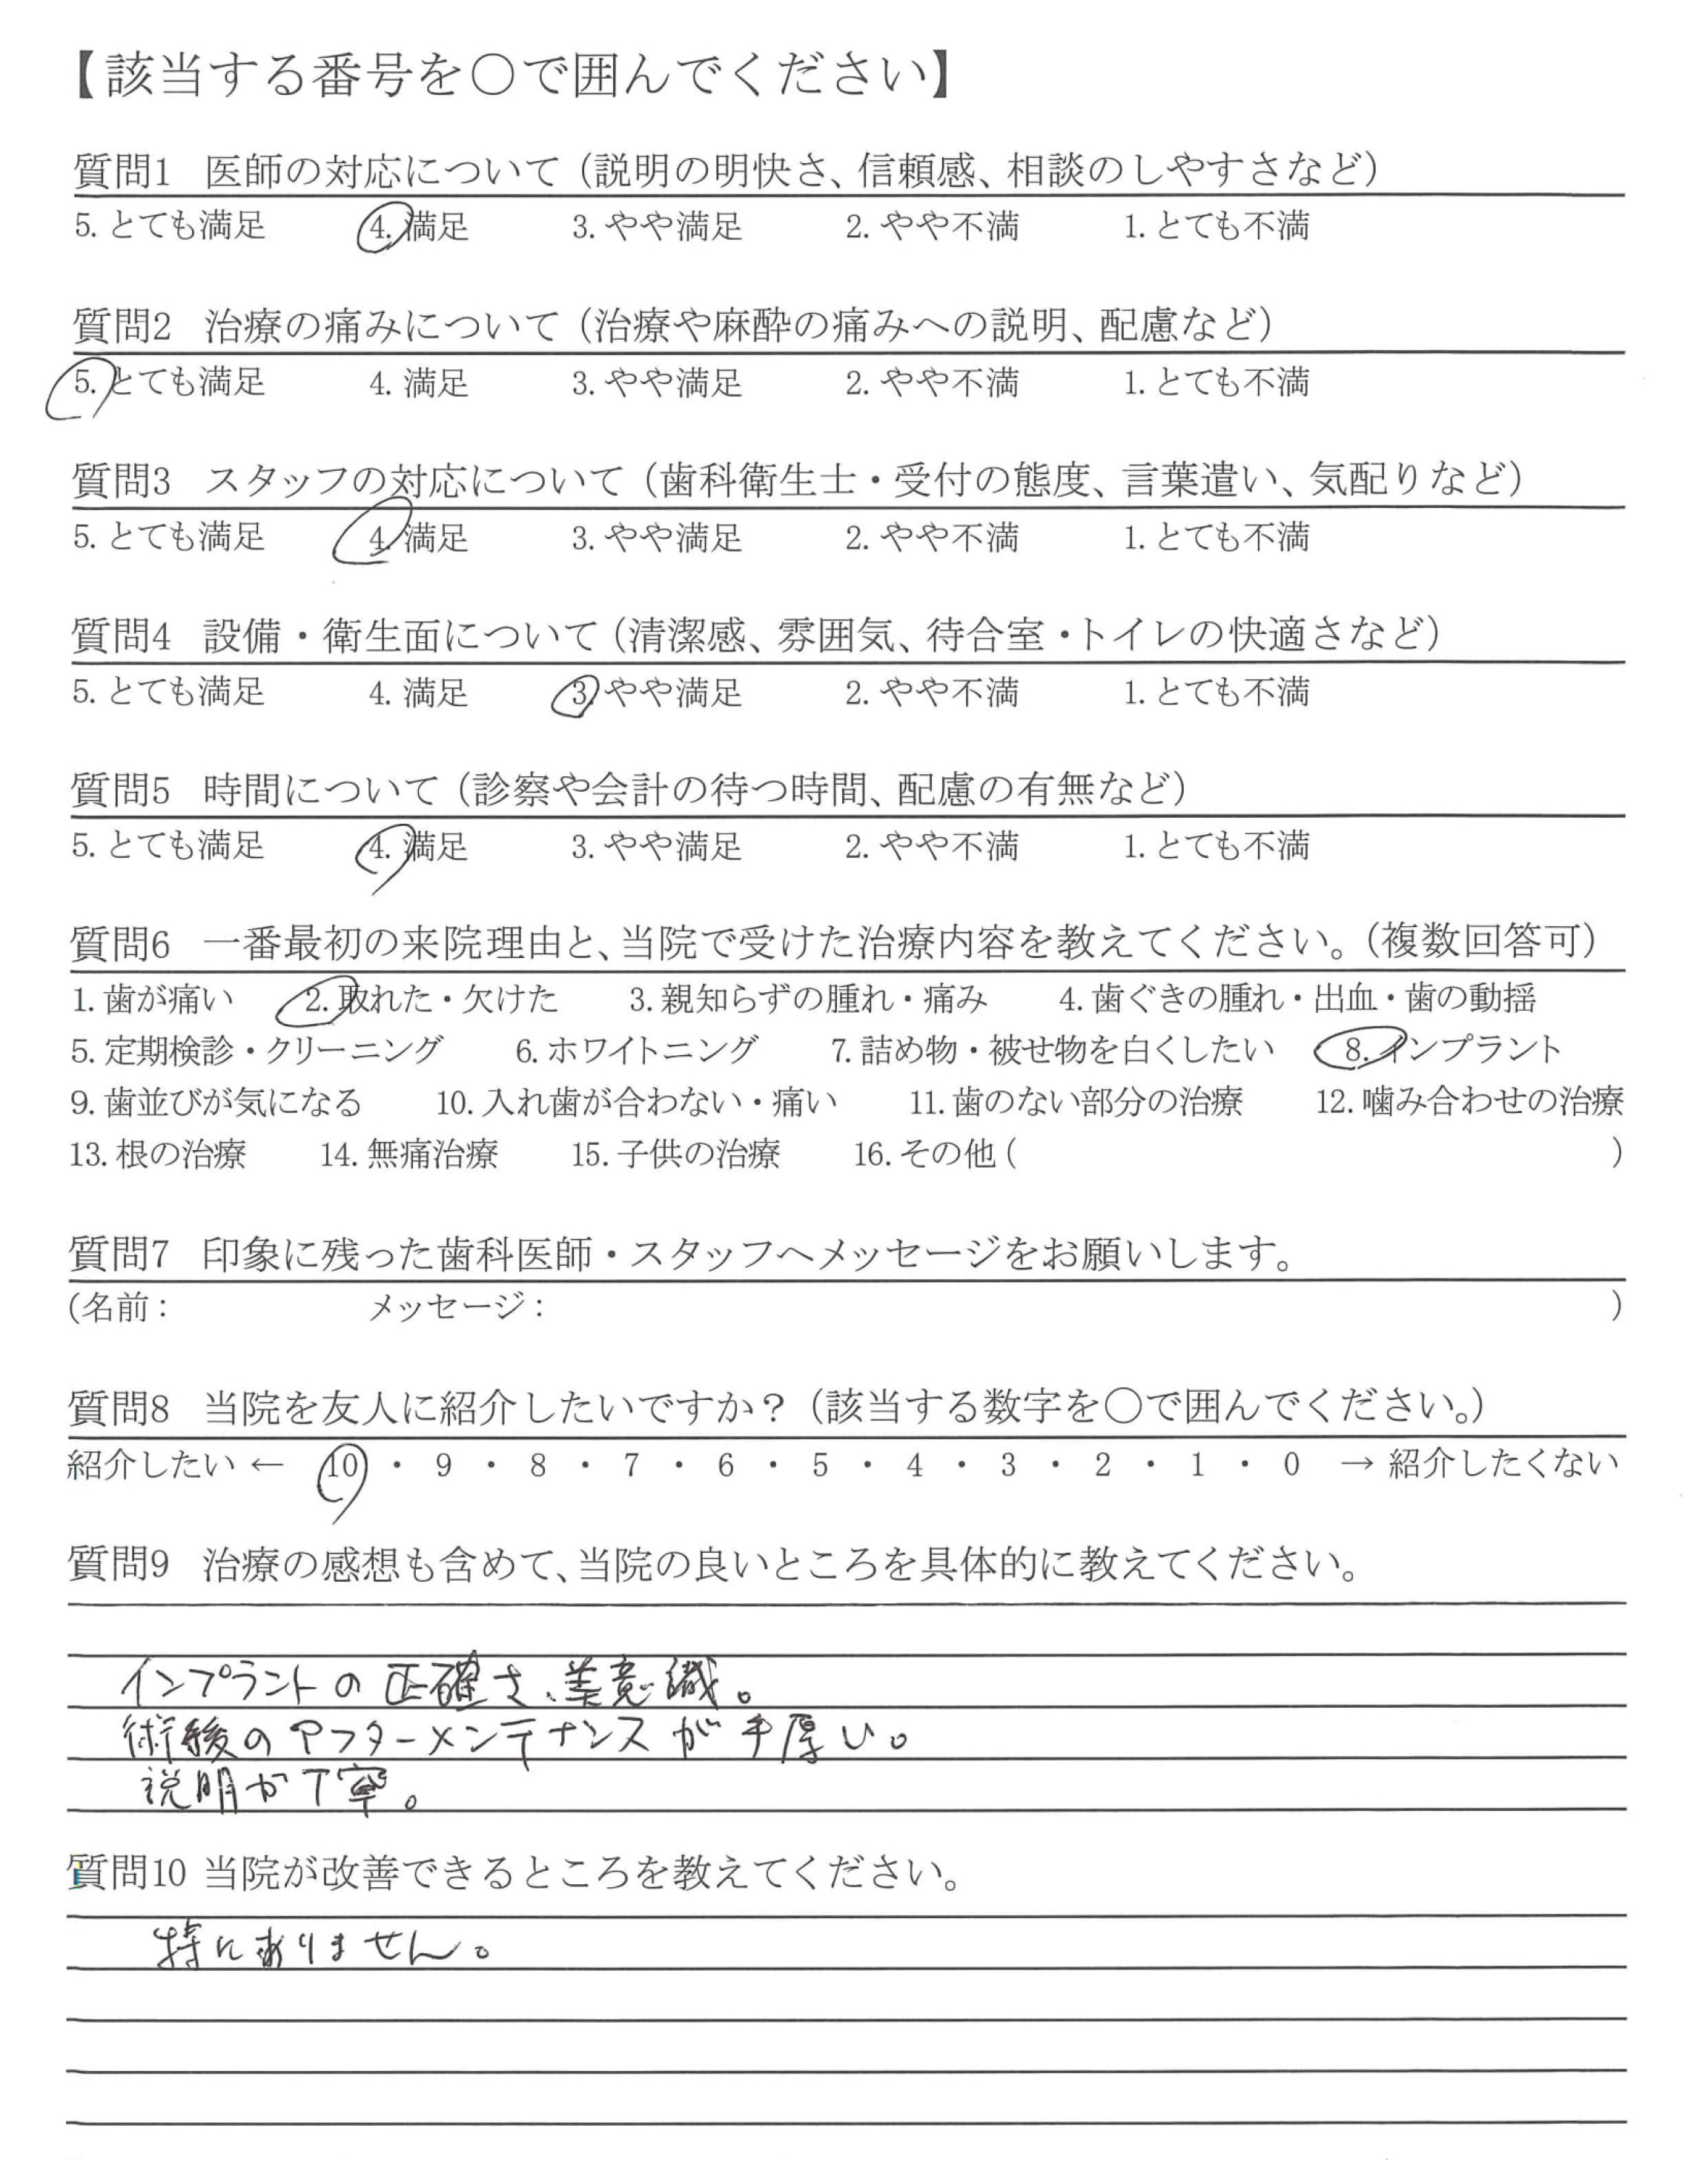 【該当する番号を○で囲んでください】
質問1 医師の対応について（説明の明快さ、信頼感、相談のしやすさなど）
5. とても満足 4. 満足 3. やや満足 2. やや不満 1. とても不満
質問2 治療の痛みについて（治療や麻酔の痛みへの説明、配慮など）
5. とても満足 4. 満足 3. やや満足 2. やや不満 1. とても不満
質問3 スタッフの対応について（歯科衛生士・受付の態度、言葉遣い、気配りなど）
5. とても満足 4. 満足 3. やや満足 2. やや不満 1. とても不満
質問4 設備・衛生面について（清潔感、雰囲気、待合室・トイレの快適さなど）
5. とても満足 4. 満足 3. やや満足 2. やや不満 1. とても不満
質問5 時間について（診察や会計の待つ時間、配慮の有無など）
5. とても満足 4. 満足 3. やや満足 2. やや不満 1. とても不満
質問6 一番最初の来院理由と、当院で受けた治療内容を教えてください。（複数回答可）
1. 歯が痛い 2. 取れた・欠けた 3. 親知らずの腫れ・痛み 4. 歯ぐきの腫れ・出血・歯の動揺
5. 定期検診・クリーニング 6. ホワイトニング 7. 詰め物・被せ物を白くしたい 8. インプラント
9. 歯並びが気になる 10. 入れ歯が合わない・痛い 11. 歯のない部分の治療 12. 噛み合わせの治療
13. 根の治療 14. 無痛治療 15. 子供の治療 16. その他 ( )
質問7 印象に残った歯科医師・スタッフへメッセージをお願いします。
(名前： メッセージ： )
質問8 当院を友人に紹介したいですか？（該当する数字を○で囲んでください。）
紹介したい ← 10 ・ 9 ・ 8 ・ 7 ・ 6 ・ 5 ・ 4 ・ 3 ・ 2 ・ 1 ・ 0 → 紹介したくない
質問9 治療の感想も含めて、当院の良いところを具体的に教えてください。
インプラントの正確さ、美意識。
術後のアフターメンテナンスが手厚い。
説明が丁寧。
質問10 当院が改善できるところを教えてください。
特にありません。